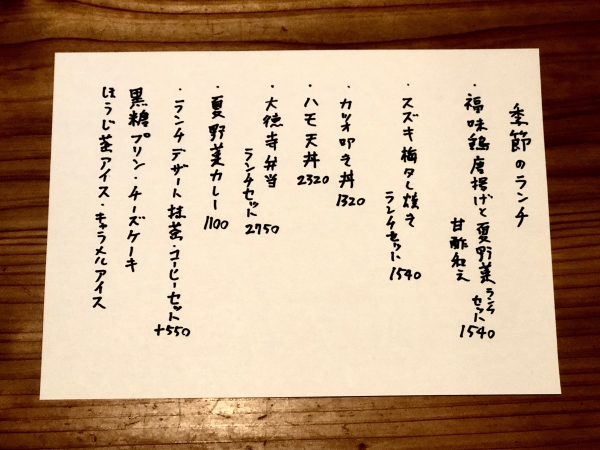 季節のランチ
・福味鶏唐揚げと夏野菜
甘酢和え
ランチセット
1540
・スズキ梅タレ焼き
ランチセット
1540
・カツオ叩き丼
1320
・ハモ天丼
2320
・大徳寺弁当
ランチセット
2750
・夏野菜カレー
1100
・ランチデザート 抹茶・コーヒーセット
+550
黒糖プリン・チーズケーキ
ほうじ茶アイス・キャラメルアイス